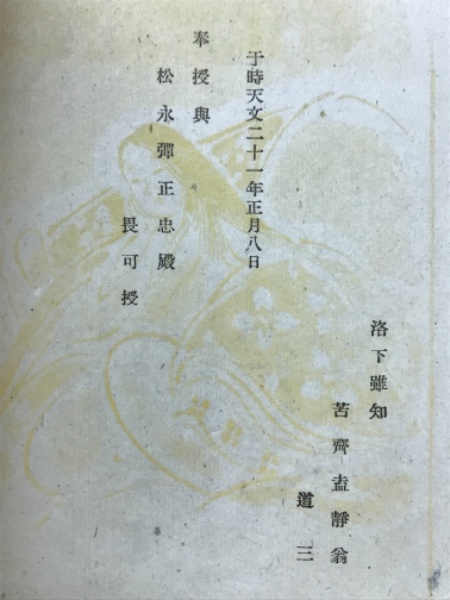 洛下雖知
苦齊盍靜翁
道三
于時天文二十一年正月八日
奉授與
松永彈正忠殿
畏可授